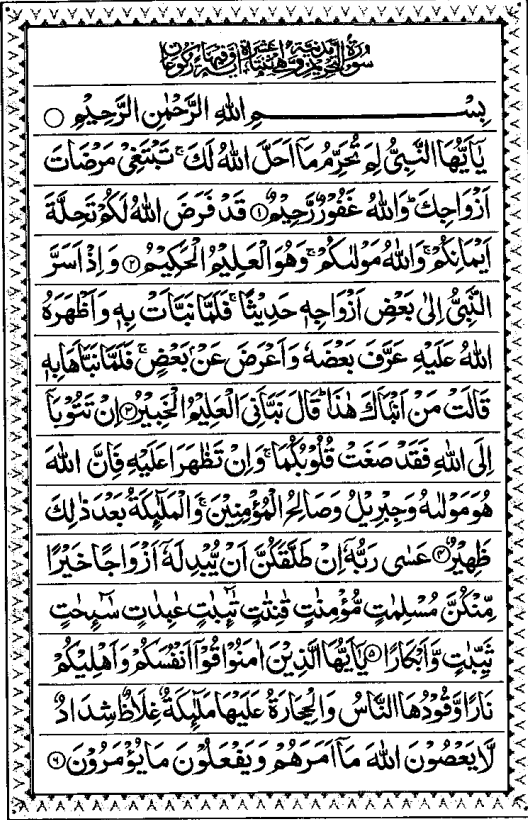 سُوْرَةُ التَّحْرِيْمِ مَدَنِيَّةٌ وَّهِيَ اثْنَتَا عَشْرَةَ اٰيَةً وَّفِيْهَا رُكُوْعَانِ
بِسْــــــــــــــمِ اللهِ الرَّحْمٰنِ الرَّحِيْمِ
يٰۤاَيُّهَا النَّبِيُّ لِمَ تُحَرِّمُ مَاۤ اَحَلَّ اللهُ لَكَ ۚ تَبْتَغِيْ مَرْضَاتَ
اَزْوَاجِكَ ؕ وَاللهُ غَفُوْرٌ رَّحِيْمٌ ۝۱ قَدْ فَرَضَ اللهُ لَكُمْ تَحِلَّةَ
اَيْمَانِكُمْ ۚ وَاللهُ مَوْلٰىكُمْ ۚ وَهُوَ الْعَلِيْمُ الْحَكِيْمُ ۝۲ وَاِذْ اَسَرَّ
النَّبِيُّ اِلٰى بَعْضِ اَزْوَاجِهٖ حَدِيْثًا ۚ فَلَمَّا نَبَّاَتْ بِهٖ وَاَظْهَرَهُ
اللهُ عَلَيْهِ عَرَّفَ بَعْضَهٗ وَاَعْرَضَ عَنْۢ بَعْضٍ ۚ فَلَمَّا نَبَّاَهَا بِهٖ
قَالَتْ مَنْ اَنْۢبَاَكَ هٰذَا ؕ قَالَ نَبَّاَنِيَ الْعَلِيْمُ الْخَبِيْرُ ۝۳ اِنْ تَتُوْبَاۤ
اِلَى اللهِ فَقَدْ صَغَتْ قُلُوْبُكُمَا ۚ وَاِنْ تَظٰهَرَا عَلَيْهِ فَاِنَّ اللهَ
هُوَ مَوْلٰىهُ وَجِبْرِيْلُ وَصَالِحُ الْمُؤْمِنِيْنَ ۚ وَالْمَلٰٓئِكَةُ بَعْدَ ذٰلِكَ
ظَهِيْرٌ ۝۴ عَسٰى رَبُّهٗۤ اِنْ طَلَّقَكُنَّ اَنْ يُّبْدِلَهٗۤ اَزْوَاجًا خَيْرًا
مِّنْكُنَّ مُسْلِمٰتٍ مُّؤْمِنٰتٍ قٰنِتٰتٍ تٰٓئِبٰتٍ عٰبِدٰتٍ سٰٓئِحٰتٍ
ثَيِّبٰتٍ وَّاَبْكَارًا ۝۵ يٰۤاَيُّهَا الَّذِيْنَ اٰمَنُوْا قُوْۤا اَنْفُسَكُمْ وَاَهْلِيْكُمْ
نَارًا وَّقُوْدُهَا النَّاسُ وَالْحِجَارَةُ عَلَيْهَا مَلٰٓئِكَةٌ غِلَاظٌ شِدَادٌ
لَّا يَعْصُوْنَ اللهَ مَاۤ اَمَرَهُمْ وَيَفْعَلُوْنَ مَا يُؤْمَرُوْنَ ۝۶